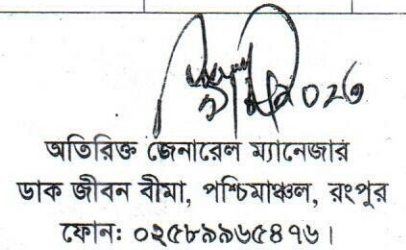 ২০২৩
অতিরিক্ত জেনারেল ম্যানেজার
ডাক জীবন বীমা, পশ্চিমাঞ্চল, রংপুর
ফোন: ০২৫৮৯৯৬৫৪৭৬।